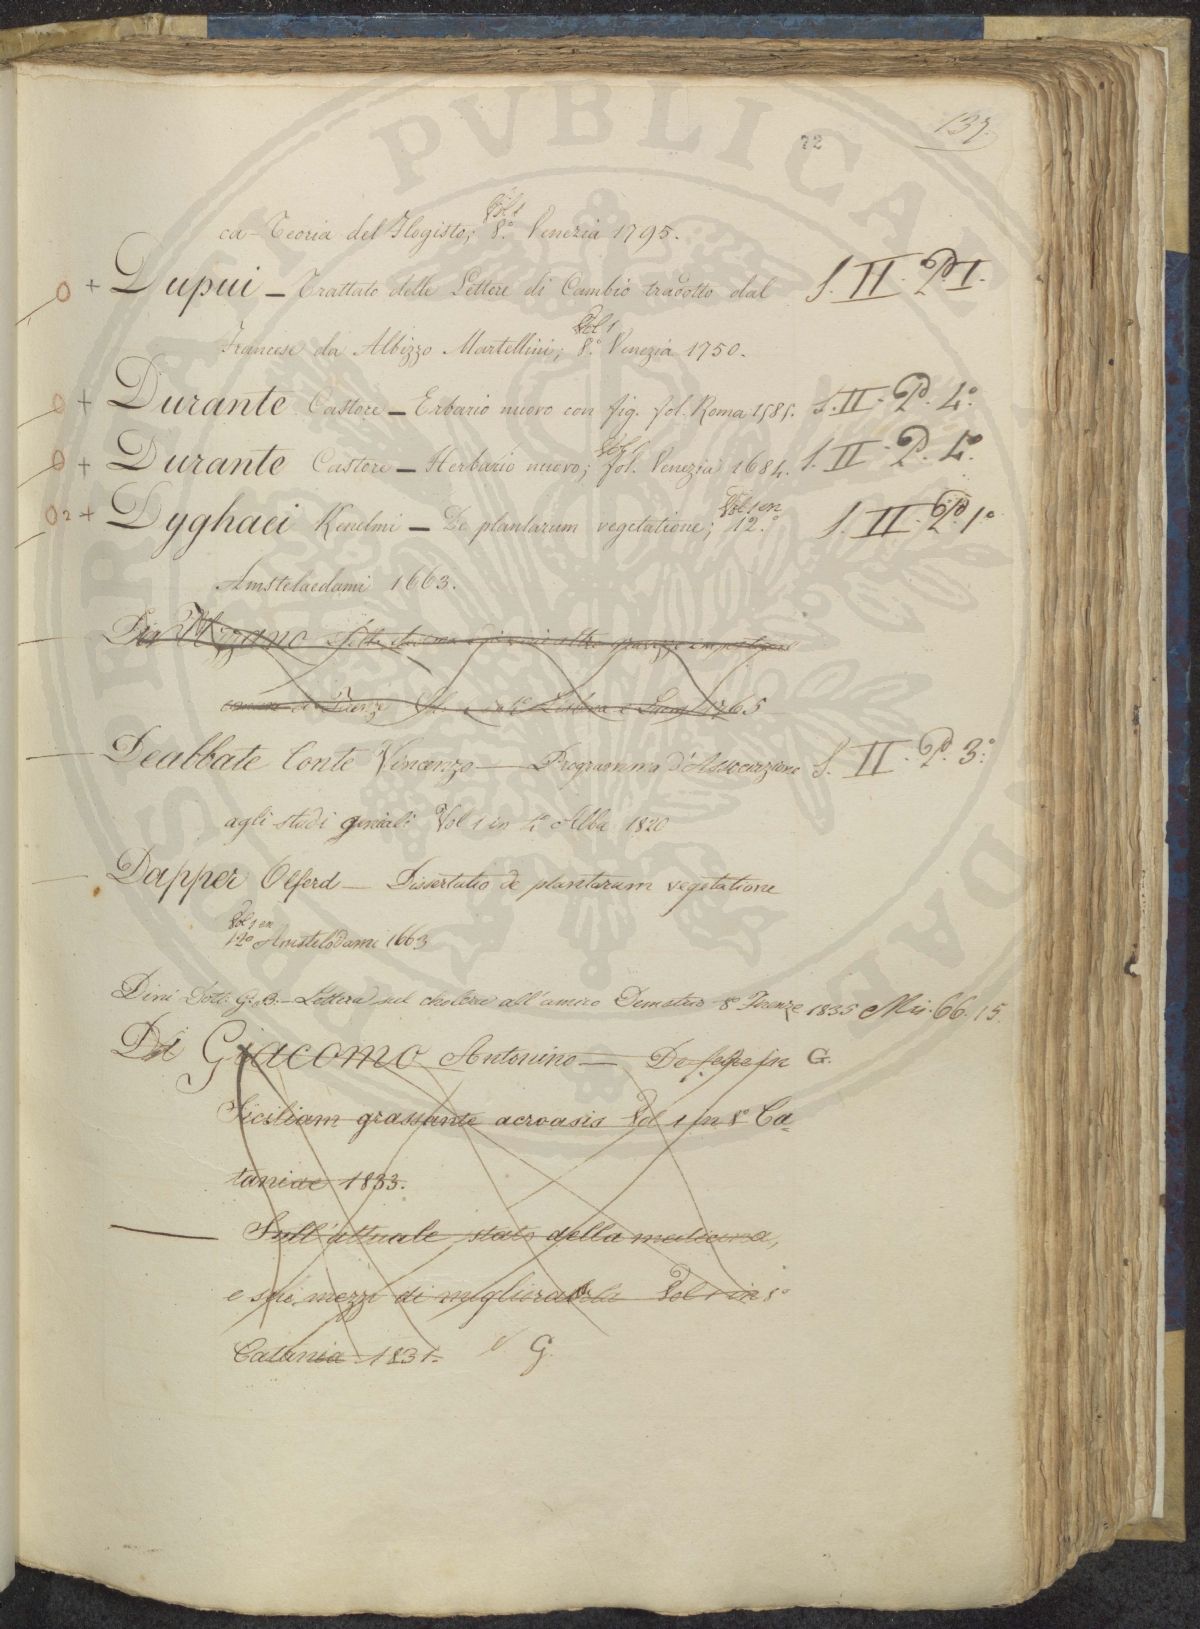 137.
72
ca - Teoria del Flogisto; Vol 1 8.º Venezia 1795.
0 + Dupui - Trattato delle Lettere di Cambio tradotto dal S. II. P. I.
Francese da Albizzo Martellini; Vol 1 8.º Venezia 1750.
0 + Durante Castore - Erbario nuovo con fig. fol. Roma 1585. S. II. P. 4.º
0 + Durante Castore - Herbario nuovo; Vol 1 fol. Venezia 1684. S. II. P. 4.º
0 2 + Dyghaei Kenelmi - De plantarum vegetatione; Vol 1 en 12.º S. II. P. 1º
Amstelaedami 1663.
1765
Deabbate Conte Vincenzo - Programma d'Associazione S. II. P. 3.º
agli studi geniali Vol 1 in 4º Alba 1820
Dapper Olferd - Dissertatio de plantarum vegetatione
Vol 1 en
12º Amstelodami 1663
Dini Dott. G. B. - Lettera sul cholera all'amico Demster 8º Firenze 1835 Mis. 66. 15.
Di Giacomo Antonino - De febre in G.
Siciliam grassante acroasis Vol 1 in 8º Ca=
taniae 1833.
Sull'attuale stato della medicina,
e sui mezzi di migliorarla Vol 1 in 8º
Catania 1831. V. G.
PUBLICA